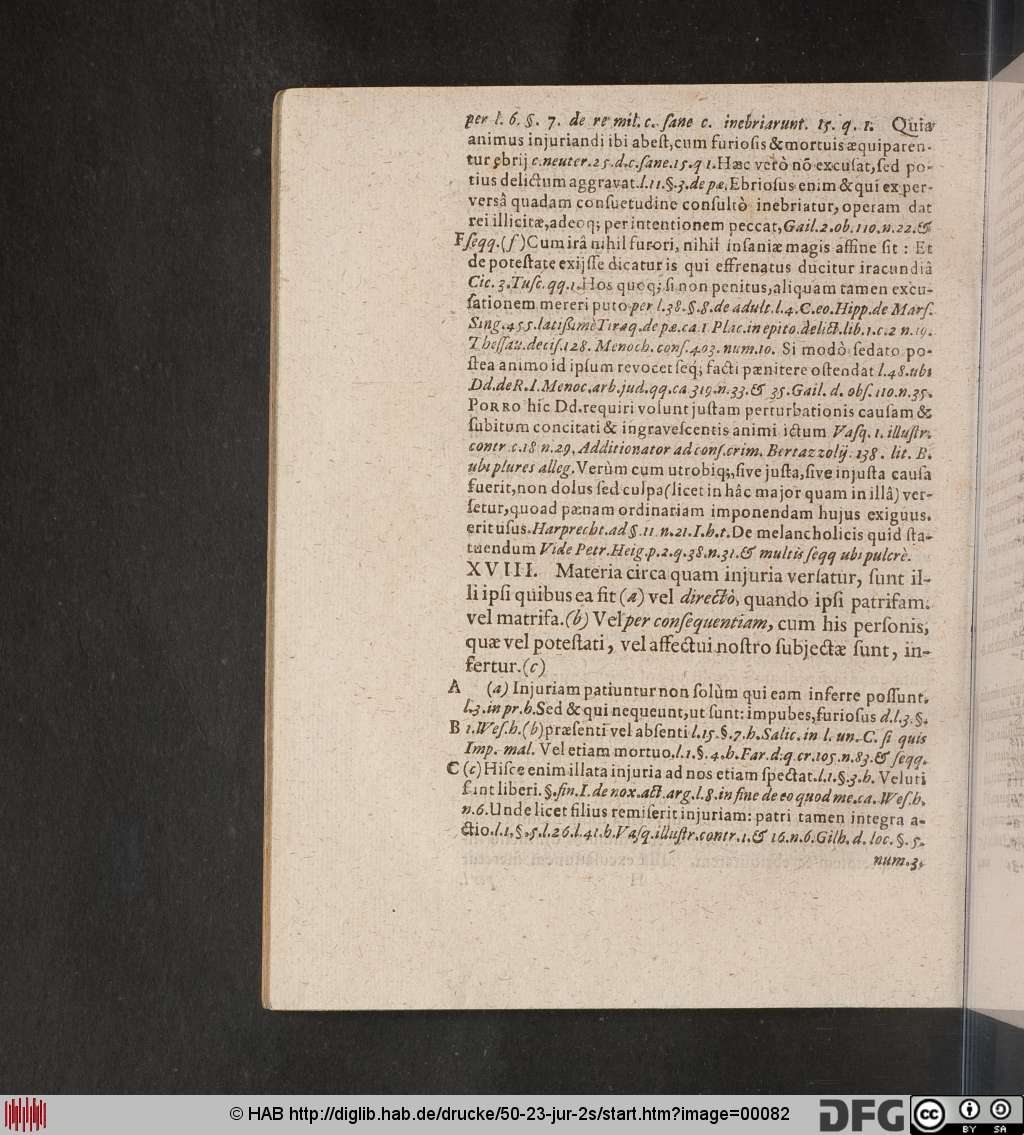 per l. 6. §. 7. de re mil. c. ſane c. inebriarunt. 15. q. 1. Quia
animus injuriandi ibi abeſt, cum furioſis & mortuis æquiparen-
tur ebrij c. neuter. 25. d. c. ſane. 15. q 1. Hæc verò nō excuſat, ſed po-
tius delictum aggravat. l. 11. §. 3. de pœ, Ebrioſus enim & qui ex per-
versâ quadam conſuetudine conſultò inebriatur, operam dat
rei illicitæ, adeoq; per intentionem peccat, Gail. 2. ob. 110. n. 22. &
F ſeqq. (f) Cum irâ nihil furori, nihil inſaniæ magis affine ſit : Et
de poteſtate exijſſe dicatur is qui effrenatus ducitur iracundiâ
Cic. 3. Tuſc. qq. 1. Hos quoq; ſi non penitus, aliquam tamen excu-
ſationem mereri puto per l. 38. §. 8. de adult. l. 4. C. eo. Hipp. de Marſ.
Sing. 455. latiſſimè Tiraq. de pœ. ca. 1 Plac. in epito. delict. lib. 1. c. 2 n. 19.
Theſſau. deciſ. 128. Menoch. conſ. 403. num. 10. Si modò ſedato po-
ſtea animo id ipſum revocet ſeq́; facti pænitere oſtendat l. 48. ubi
Dd. de R. I. Menoc. arb. jud. qq. ca 319. n. 33. & 35. Gail. d. obſ. 110. n. 35.
PORRO hic Dd. requiri volunt juſtam perturbationis cauſam &
ſubitum concitati & ingraveſcentis animi ictum Vaſq. 1. illuſtr.
contr. c. 18 n. 29. Additionator ad conſ. crim. Bertazzolij. 138. lit. B.
ubi plures alleg. Verùm cum utrobiq;, ſive juſta, ſive injuſta cauſa
fuerit, non dolus ſed culpa (licet in hâc major quam in illâ) ver-
ſetur, quoad pænam ordinariam imponendam hujus exiguus.
erit uſus. Harprecht. ad §. 11 n. 21. I. h. t. De melancholicis quid ſta-
tuendum Vide Petr. Heig. p. 2. q. 38. n. 31. & multis ſeqq ubi pulcrè.
XVIII. Materia circa quam injuria verſatur, ſunt il-
li ipſi quibus ea fit (a) vel directò, quando ipſi patrifam.
vel matrifa. (b) Vel per conſequentiam, cum his perſonis,
quæ vel poteſtati, vel affectui noſtro ſubjectæ ſunt, in-
fertur. (c)
A (a) Injuriam patiuntur non ſolùm qui eam inferre poſſunt.
l. 3. in pr. h. Sed & qui nequeunt, ut ſunt: impubes, furioſus d. l. 3. §.
B 1. Weſ. h. (b) præſenti vel abſenti l. 15. §. 7. h. Salic. in l. un. C. ſi quis
Imp. mal. Vel etiam mortuo. l. 1. §. 4. h. Far. d. q cr. 105. n. 83. & ſeqq.
C (c) Hiſce enim illata injuria ad nos etiam ſpectat. l. 1. §. 3. h. Veluti
ſunt liberi. §. fin. I. de nox. act. arg. l. 8. in fine de eo quod me. ca. Weſ. h.
n. 6. Unde licet filius remiſerit injuriam: patri tamen integra a-
ctio. l. 1. §. 5. l. 26. l. 41. h. Vaſq. illuſtr. contr. 1. & 16. n. 6. Gilh. d. loc. §. 5.
num. 3.
© HAB http://diglib.hab.de/drucke/50-23-jur-2s/start.htm?image=00082
DFG
cc
BY SA